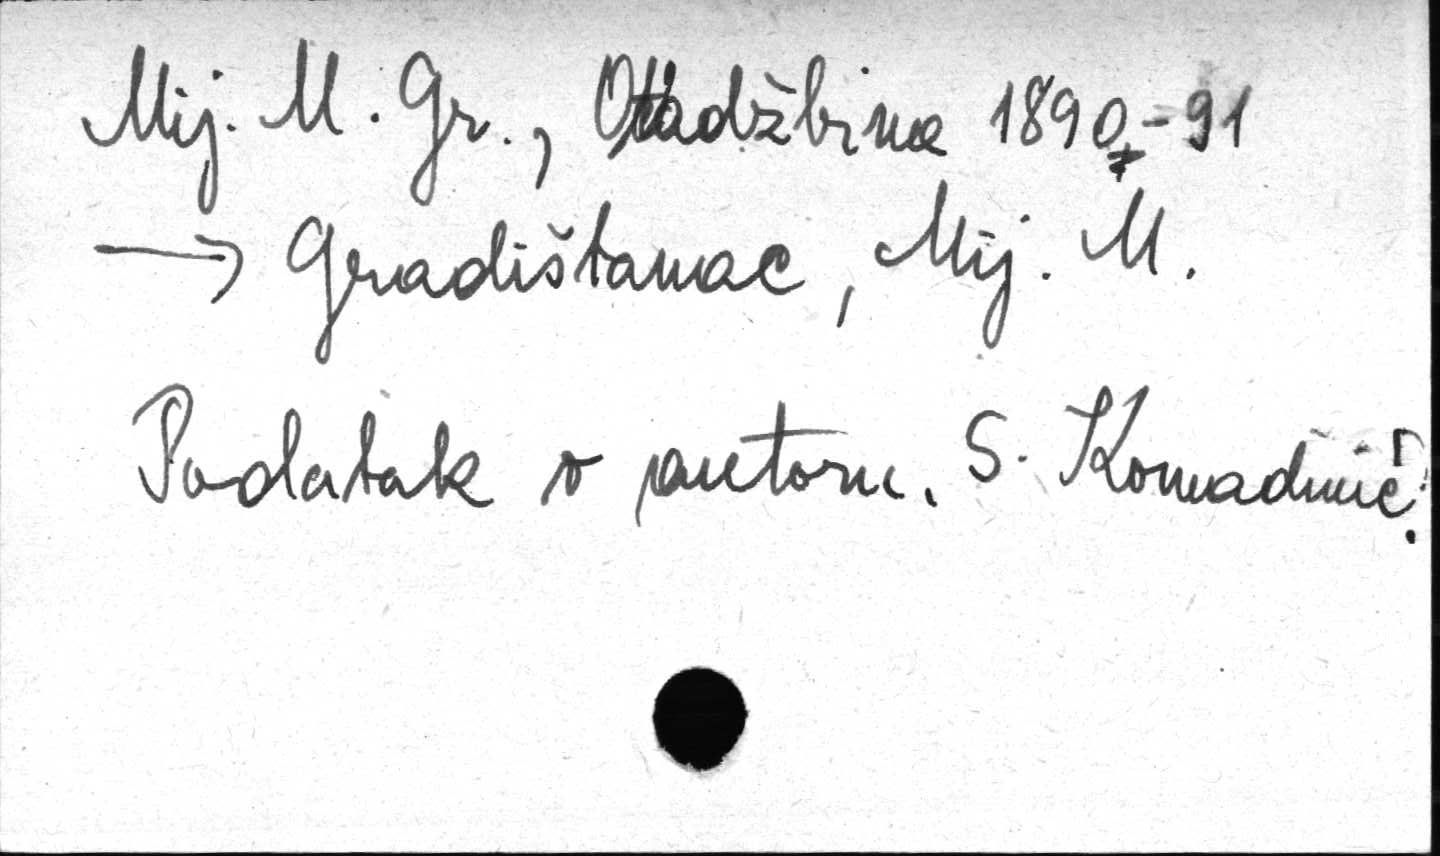 Mij. M. Gr., Otadžbina 1890-91
→ Gradištanac, Mij. M.
Podatak o autoru. S. Komadinić.